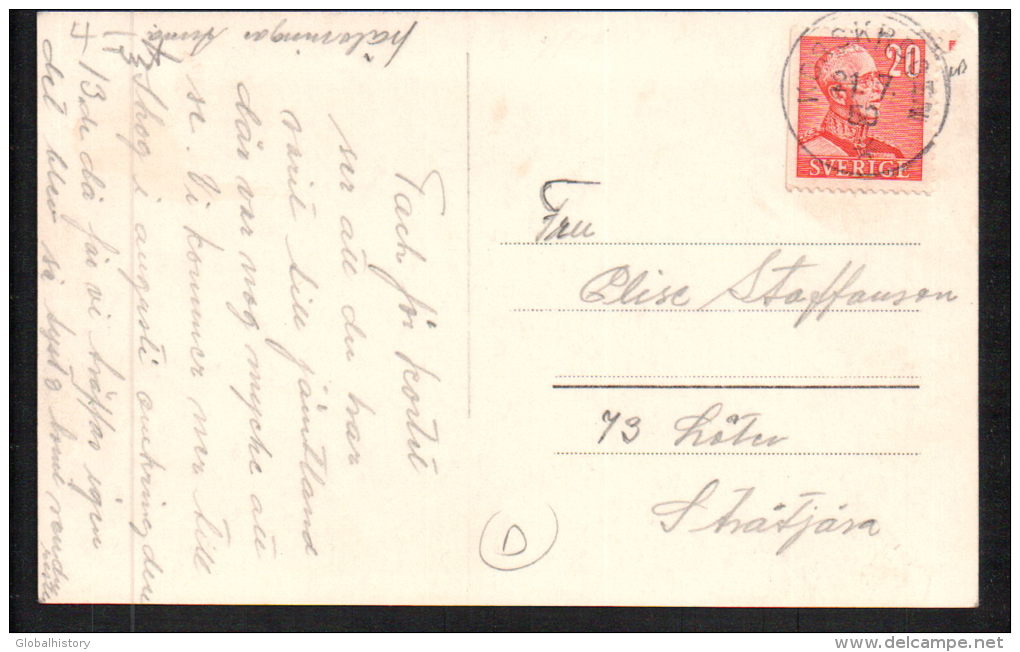 Tack för kortet
ser att du har
varit till jämtland
där var nog mycke att
se. Vi kommer ner till
Skog i augusti omkring den
13de då får vi träffas igen
det blev så tyst
hälsningar Anna
20
SVERIGE
21 7 55
Fru
Elise Staffanson
73 Löten
Stråtjära
D
Globalhistory
www.delcampe.net